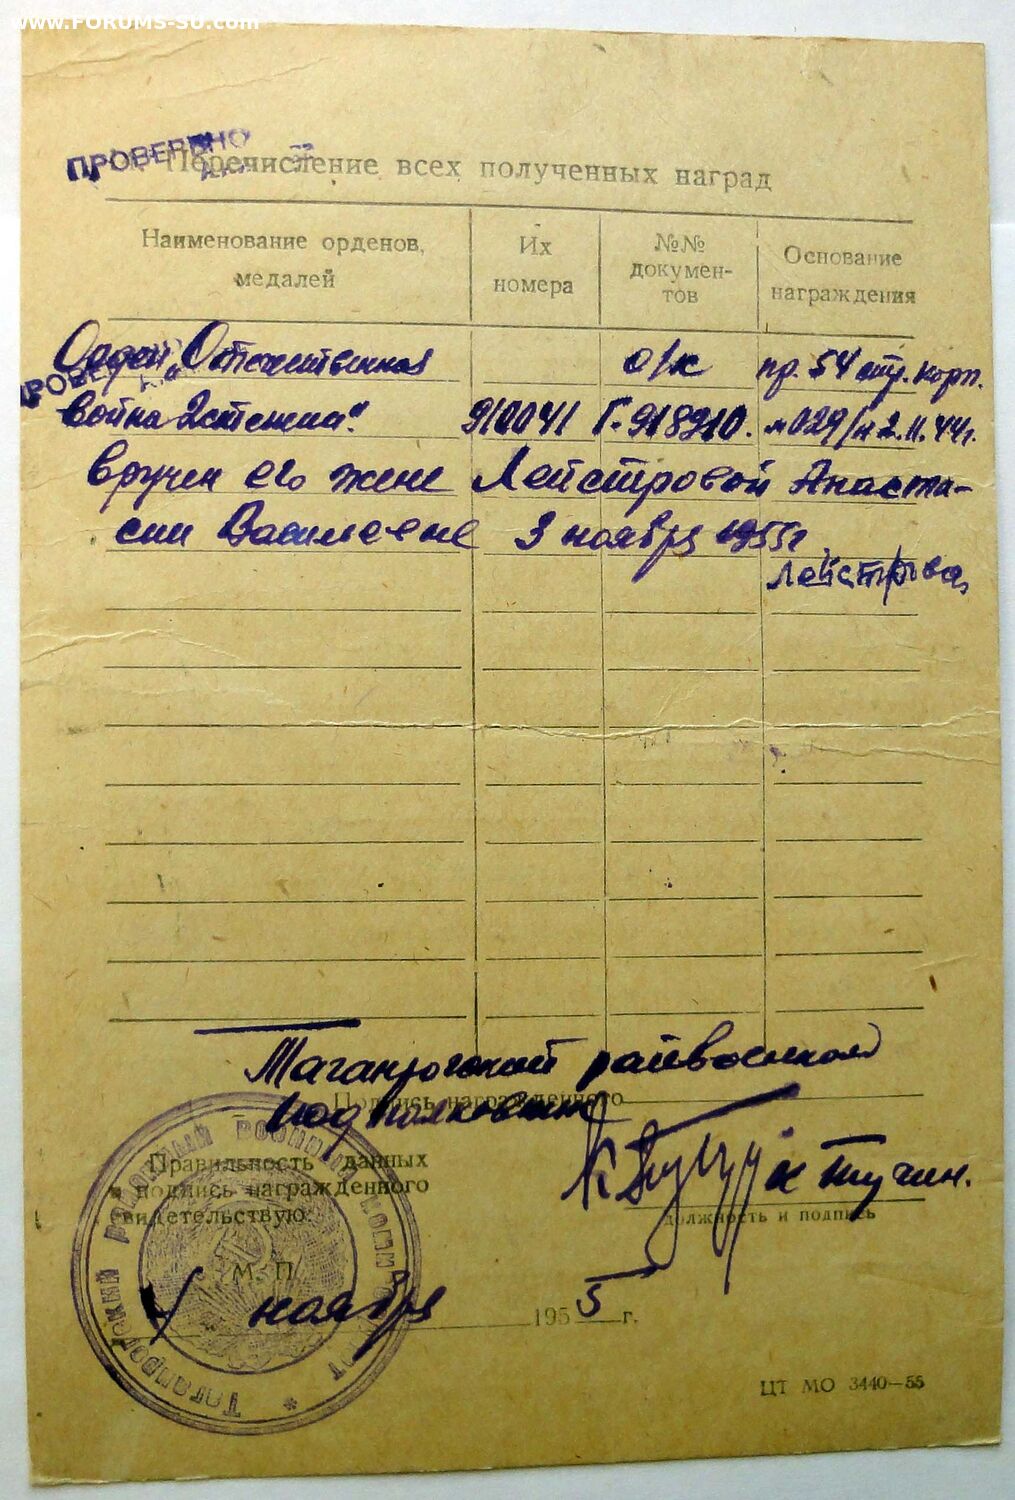 www.FORUMS-SU.com
ПРОВЕРЕНО
Перечисление всех полученных наград
Наименование орденов, медалей
Их номера
№№ документов
Основание награждения
Орден „Отечественная
о/к
пр. 54 стр. корп.
война 2 степени".
910041
Г. 918910.
№ 029/н 2.11.44 г.
вручен его жене Лейстровой Анаста-
сии Васильевне 3 ноября 1955 г
Лейстрова
Таганрогский райвоенком
Подпись награжденного
Подполковник
Правильность данных
и подпись награжденного
свидетельствую:
Тучин.
должность и подпись
М. П.
4 ноября 1955 г.
Таганрогский районный военный комиссариат
ЦТ МО 3440—55